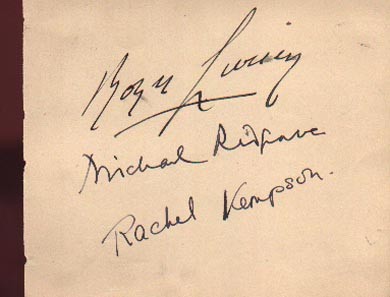 Roger Livesey
Michael Redgrave
Rachel Kempson.